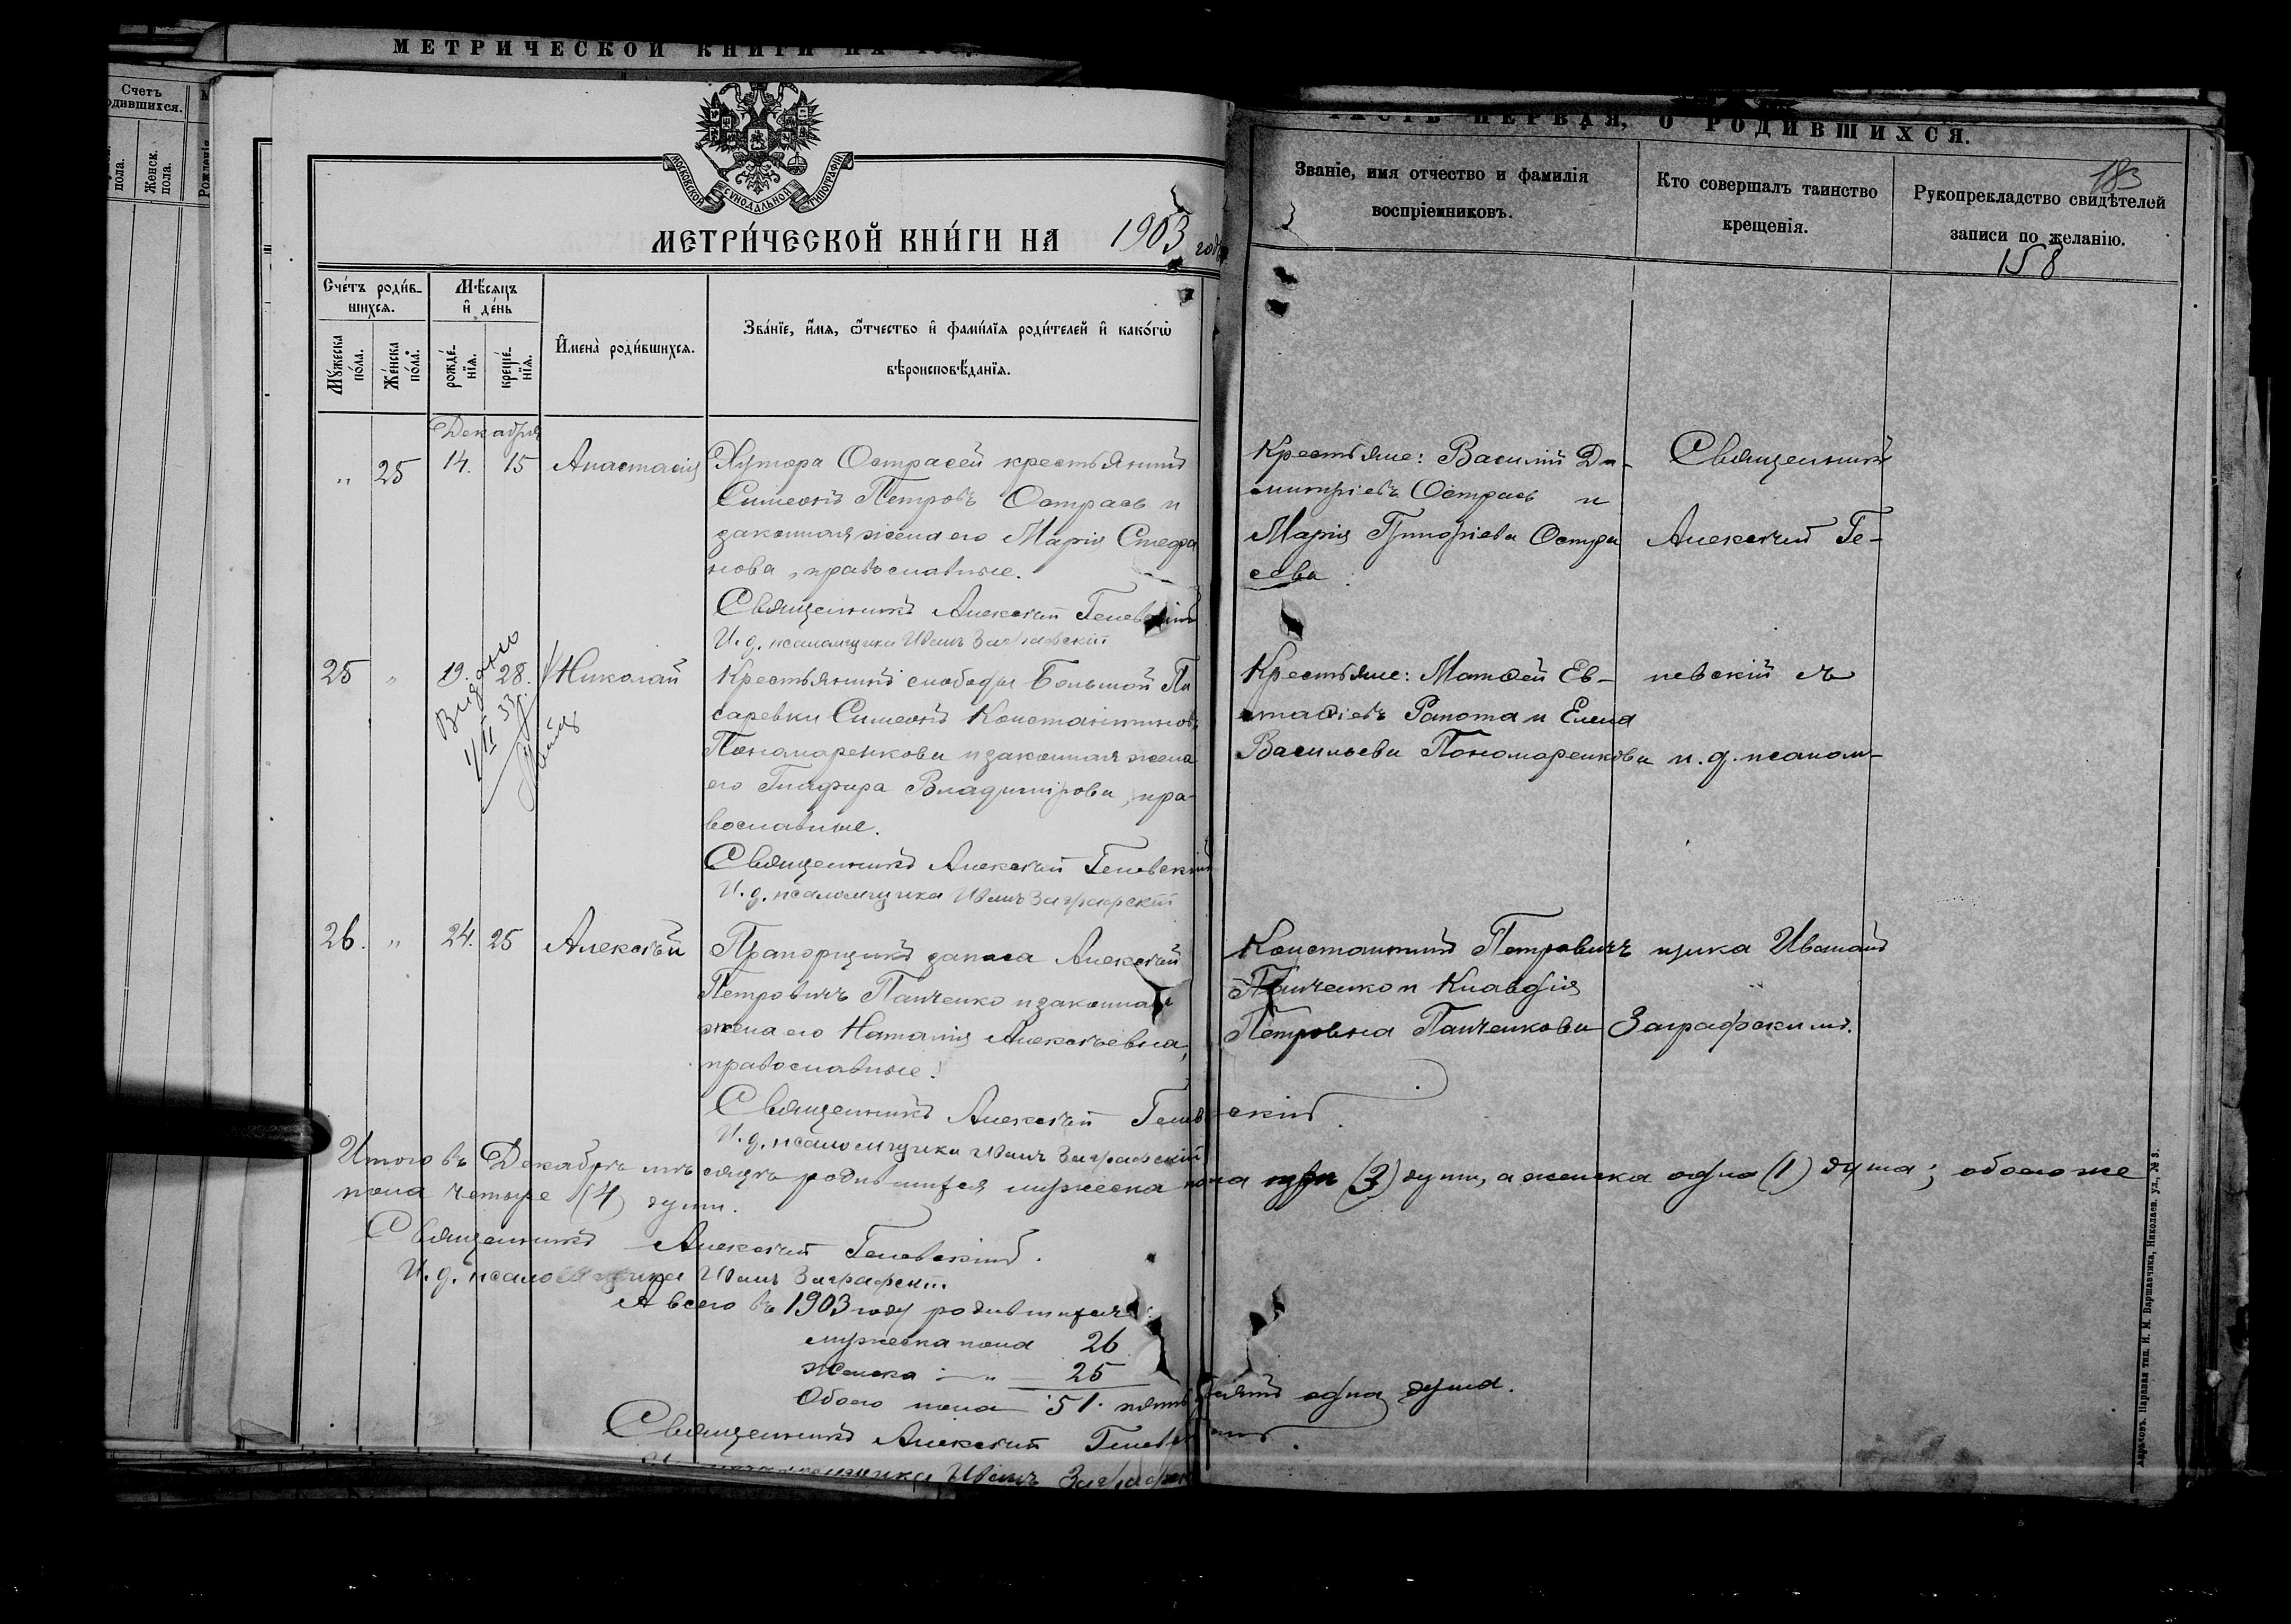 МЕТРИЧЕСКОЙ КНИГИ НА
Счетъ
одившихся.
пола.
Женск. пола.
Рожденія
МОСКОВСКОЙ СѴНОДАЛЬНОЙ ТИПОГРАФІИ
МЕТРИ́ЧЕСКОЙ КНИ́ГИ НА 1903 года
Сче́тъ роди́в-
шихся.
Мѣсяцъ
и҆ де́нь
Мꙋ́жеска по́ла.
Же́нска по́ла.
рожде́-нїѧ.
креще́-нїѧ.
И҆мена̀ роди́вшихся.
Зва́нїе, и҆́мѧ, ѻ҆́тчество и҆ фами́лїѧ роди́телей и҆ како́гѡ
вѣроисповѣ́данїѧ.
Декабря
" 25 14. 15 Анастасія
Хутора Острасей крестьянинъ
Симеонъ Петровъ Острась и
законная жена его Марія Стефа
нова, православные.
Священникъ Алексѣй Геневскій
И. д. псаломщика Иванъ Заграфскій
25 " 19. 28. Николай
Выдано
1/II 33 г.
Крестьянинъ слободы Большой Пи
саревки Симеонъ Константиновъ
Пономаренкови и законная жена
его Глафира Владимірова, пра-
вославные.
Священникъ Алексѣй Геневскій
И. д. псаломщика Иванъ Заграфскій
26. " 24. 25 Алексѣй
Прапорщикъ запаса Алексѣй
Петровичъ Панченко и законная
жена его Наталія Алексѣевна,
православные.
Священникъ Алексѣй Геневскій
И. д. псаломщика Иванъ Заграфскій
Итого въ Декабрѣ мѣсяцѣ родившихся мужеска пола три (3) души, а женска одна (1) душа; обоего же
пола четыре (4) души.
Священникъ Алексѣй Геневскій.
И. д. псаломщика Иванъ Заграфскій.
А всего въ 1903 году родившихся:
мужеска пола 26
женска — " — 25
Обоего пола 51. пятьдесятъ одна душа.
Священникъ Алексѣй Геневскій
И. д. псаломщика Иванъ Заграфск
ЧАСТЬ ПЕРВАЯ, О РОДИВШИХСЯ.
183
Званіе, имя отчество и фамилія
воспріемниковъ.
Кто совершалъ таинство
крещенія.
Рукоприкладство свидѣтелей
записи по желанію.
158
Крестьяне: Василій Ди-
митріевъ Острась и
Марія Григоріева Остра
сева
Крестьяне: Матѳей Ев-
стаѳіевъ Рапота и Елена
Васильева Пономаренкова
Константинъ Петровичъ
Панченко и Клавдія
Петровна Панченкова
Священникъ
Алексѣй Ге-
невскій съ
и. д. псалом-
щика Иваномъ
Заграфскимъ.
Харьковъ. Паровая тип. И. М. Варшавчика, Николаев. ул., № 3.